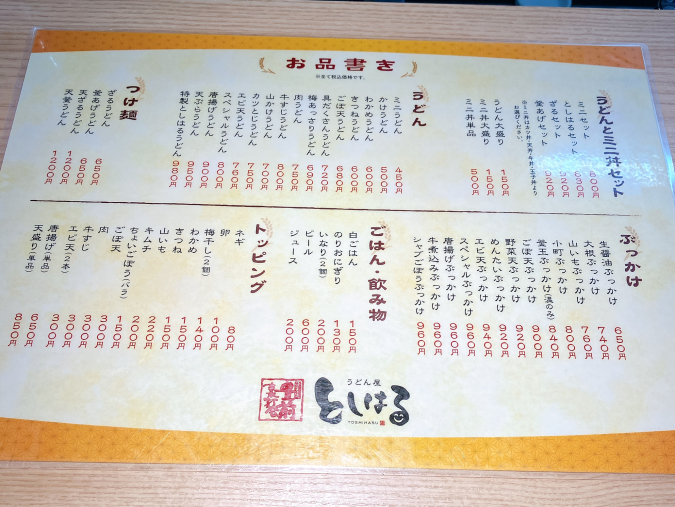 お品書き
※全て税込価格です。
うどんとミニ丼セット
ミニセット 800円
としはるセット 830円
ざるセット 920円
釜あげセット 920円
※ミニ丼はカツ丼・天丼・牛丼・玉子丼より
お選びください。
うどん大盛り 150円
ミニ丼大盛り 150円
ミニ丼単品 500円
うどん
ミニうどん 450円
かけうどん 500円
わかめうどん 600円
きつねうどん 600円
ごぼ天うどん 680円
具だくさんうどん 720円
梅あっさりうどん 690円
肉うどん 800円
牛すじうどん 750円
山かけうどん 700円
カツとじうどん
エビ天うどん 760円
スペシャルうどん 750円
唐揚げうどん 800円
天ぷらうどん
特製としはるうどん 980円
つけ麺
ざるうどん 650円
釜あげうどん 650円
天ざるうどん 1200円
天釜うどん 1200円
ぶっかけ
生醤油ぶっかけ 650円
大根ぶっかけ 740円
山いもぶっかけ 760円
小町ぶっかけ 800円
釜玉ぶっかけ(温のみ) 840円
ごぼ天ぶっかけ 900円
野菜天ぶっかけ 920円
めんたいぶっかけ 920円
エビ天ぶっかけ 940円
スペシャルぶっかけ 960円
唐揚げぶっかけ 960円
牛煮込みぶっかけ 960円
シャブごぼうぶっかけ 960円
ごはん・飲み物
白ごはん 150円
のりおにぎり 130円
いなり(2個) 200円
ビール 600円
ジュース 200円
トッピング
ネギ 80円
卵 100円
梅干し(2個) 140円
わかめ 150円
きつね 150円
山いも 220円
キムチ 220円
ちょいごぼう(バラ) 150円
ごぼ天 300円
肉 300円
牛すじ 300円
エビ天(2本) 300円
唐揚げ(単品) 650円
天盛り(単品) 850円
うどん屋
としはる
TOSHIHARU